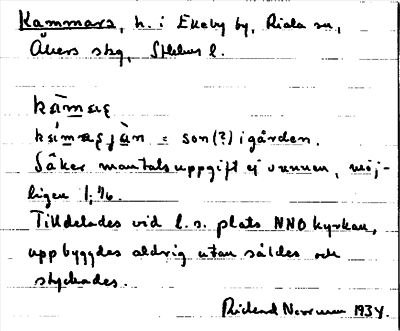 Kammars, h. i Ekeby by, Riala sn,
Åkers skg, Sthlms l.
kàmaʂ
= son(?) i gården.
Säker mantalsuppgift ej vunnen, möj-
ligen 1/16.
Tilldelades vid l. s. plats NNO kyrkan,
uppbyggdes aldrig utan såldes och
styckades.
Rickard 1934.